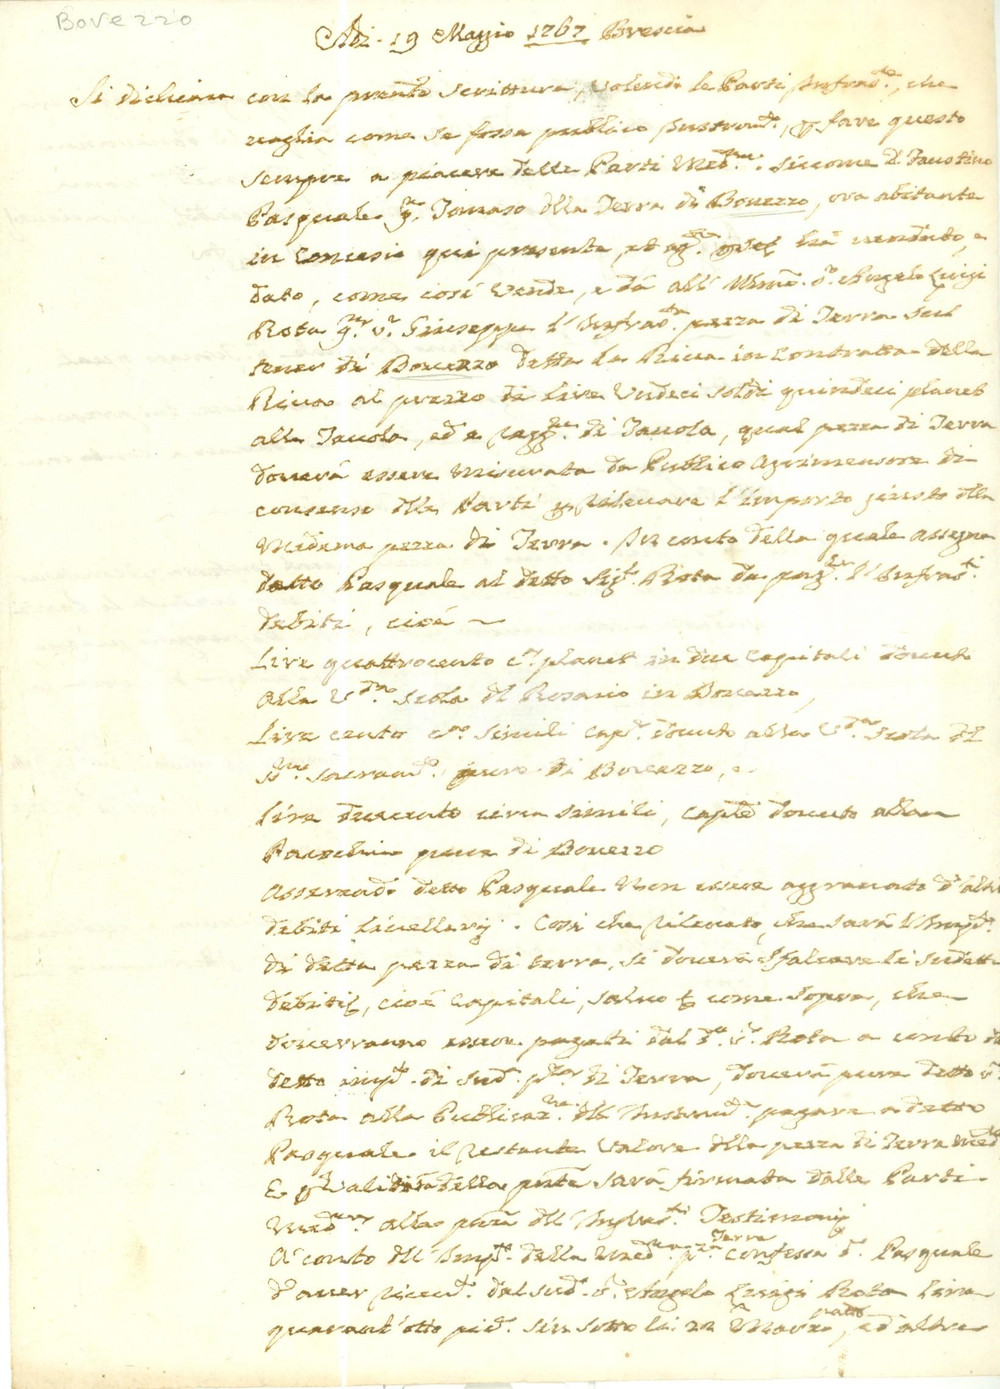 Bovezzo
Adi. 19 Maggio 1767 Brescia
Si dichiara con la pr̃nte Scrittura, volendo le Parti Infrad.e, che
vaglia come se fosse publico Instrom.to, e fare questo
sempre a piacere delle Parti Med.me. Siccome d. Faustino
Pasquale q. Tomaso della Terra di Bouezzo, ora abitante
in Concesio qui presente, et hà venduto, e
dato, come così Vende, e dà all' Ill̃mo S.r Angelo Luigi
Rota q. S.r Giuseppe l'Infrad.ta pezza di Terra sul
tener di Bouezzo detta la Riua in Contratta della
Riua al prezzo di Lire Undeci soldi quindeci planet
alla Tauola, ed a ragg.e di Tauola, qual pezza di Terra
douerà essere misurata da Publico Agrimensore di
consenso dlle Parti p rileuare l'importo giusto dlla
medema pezza di Terra. In conto della quale assegna
detto Pasquale al detto Sig.r Rota da pag.e l'Infrad.ti
debiti, cioè ~
Lire quattrocento c.a planet in due Capitali douuti
alla V.da Scola dl Rosario in Bouezzo,
Lire cento c.a simili Cap.l douuto alla V.da Scola dl
S.mo Sacram.to pure di Bouezzo, e.
Lire duecento circa simili, Cap.le douuto alla
Parochia pure di Bouezzo
Asserendo detto Pasquale non essere aggrauato d'altri
debiti Liuellarij. Così che rileuato, che sarà l'Imp.to
di detta pezza di terra, si douerà sfalcare li sudetti
debiti, cioè Capitali, saluo come sopra, che
doueranno esser pagati dal d.to S.r Rota a conto di
detto imp.to di sud.a p.za di Terra, douerà pure detto S.r
Rota alla Publicaz.ne dll' Instrum.to pagare a detto
Pasquale il restante Valore dlla pezza di Terra med.ma
E p Validità della pñte sarà firmata dalle Parti
Med.me alla pñza dll' Infrad.ti Testimonij
A conto dll' Imp.to della med.ma p.za Terra confessa d.o Pasquale
d'auer riceu.to dal sud.o S.r Angelo Luigi Rota Lire
quarant'otto pic.e sin sotto li 22 Marzo , ed altre